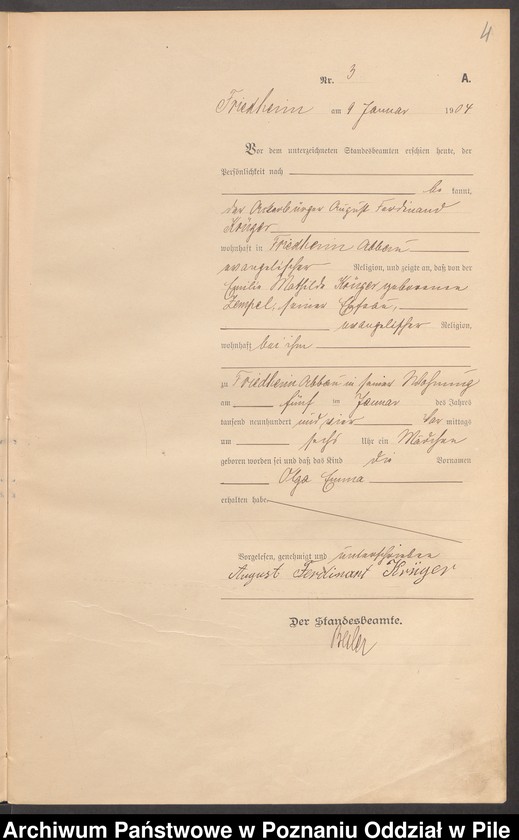 4
Nr. 3 A.
Friedheim am 9 Januar 1904
Vor dem unterzeichneten Standesbeamten erschien heute, der
Persönlichkeit nach
be kannt,
der Ackerbürger August Ferdinand
Krüger
wohnhaft in Friedheim Abbau
evangelischer Religion, und zeigte an, daß von der
Emilie Mathilde Krüger geborenen
Zempel, seiner Ehefrau,
evangelischer Religion,
wohnhaft bei ihm
zu Friedheim Abbau in seiner Wohnung
am fünf ten Januar des Jahres
tausend neunhundert und vier Vor mittags
um sechs Uhr ein Mädchen
geboren worden sei und daß das Kind die Vornamen
Olga Emma
erhalten habe.
Vorgelesen, genehmigt und unterschrieben
August Ferdinant Krüger
Der Standesbeamte.
Archiwum Państwowe w Poznaniu Oddział w Pile